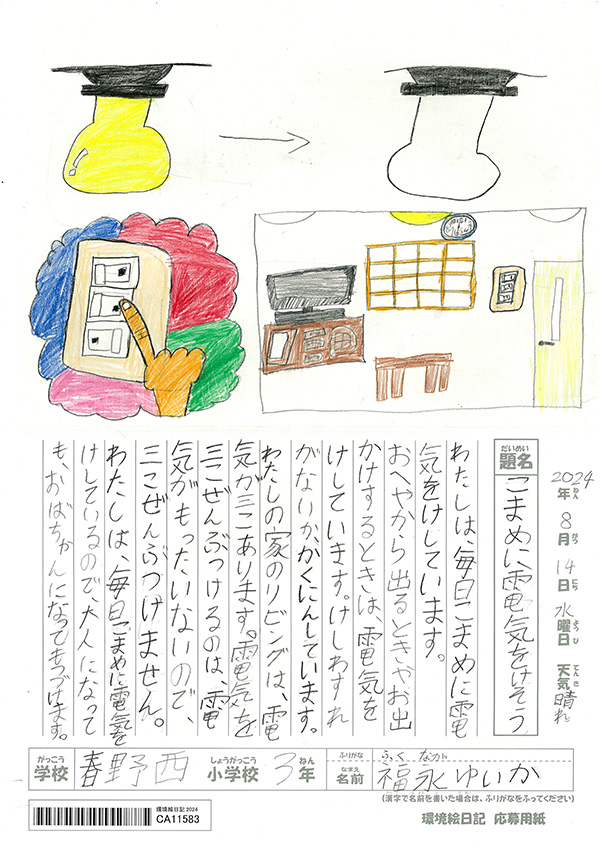 2024年8月14日水曜日 天気晴れ
ねん がつ にち ようび てんき
だいめい
題名 こまめに電気をけそう
わたしは、毎日こまめに電
気をけしています。
おへやから出るときやお出
かけするときは、電気を
けしています。けしわすれ
がないか、かくにんしています。
わたしの家のリビングは、電
気が三こあります。電気を
三こぜんぶつけるのは、電
気がもったいないので、
三こぜんぶつけません。
わたしは、毎日こまめに電気を
けしているので、大人になって
も、おばちゃんになってもつづけます。
がっこう しょうがっこう ねん ふりがな ふく なが
学校 春野西 小学校 3年 なまえ 名前 福永ゆいか
(漢字で名前を書いた場合は、ふりがなをふってください)
環境絵日記2024
CA11583
環境絵日記 応募用紙